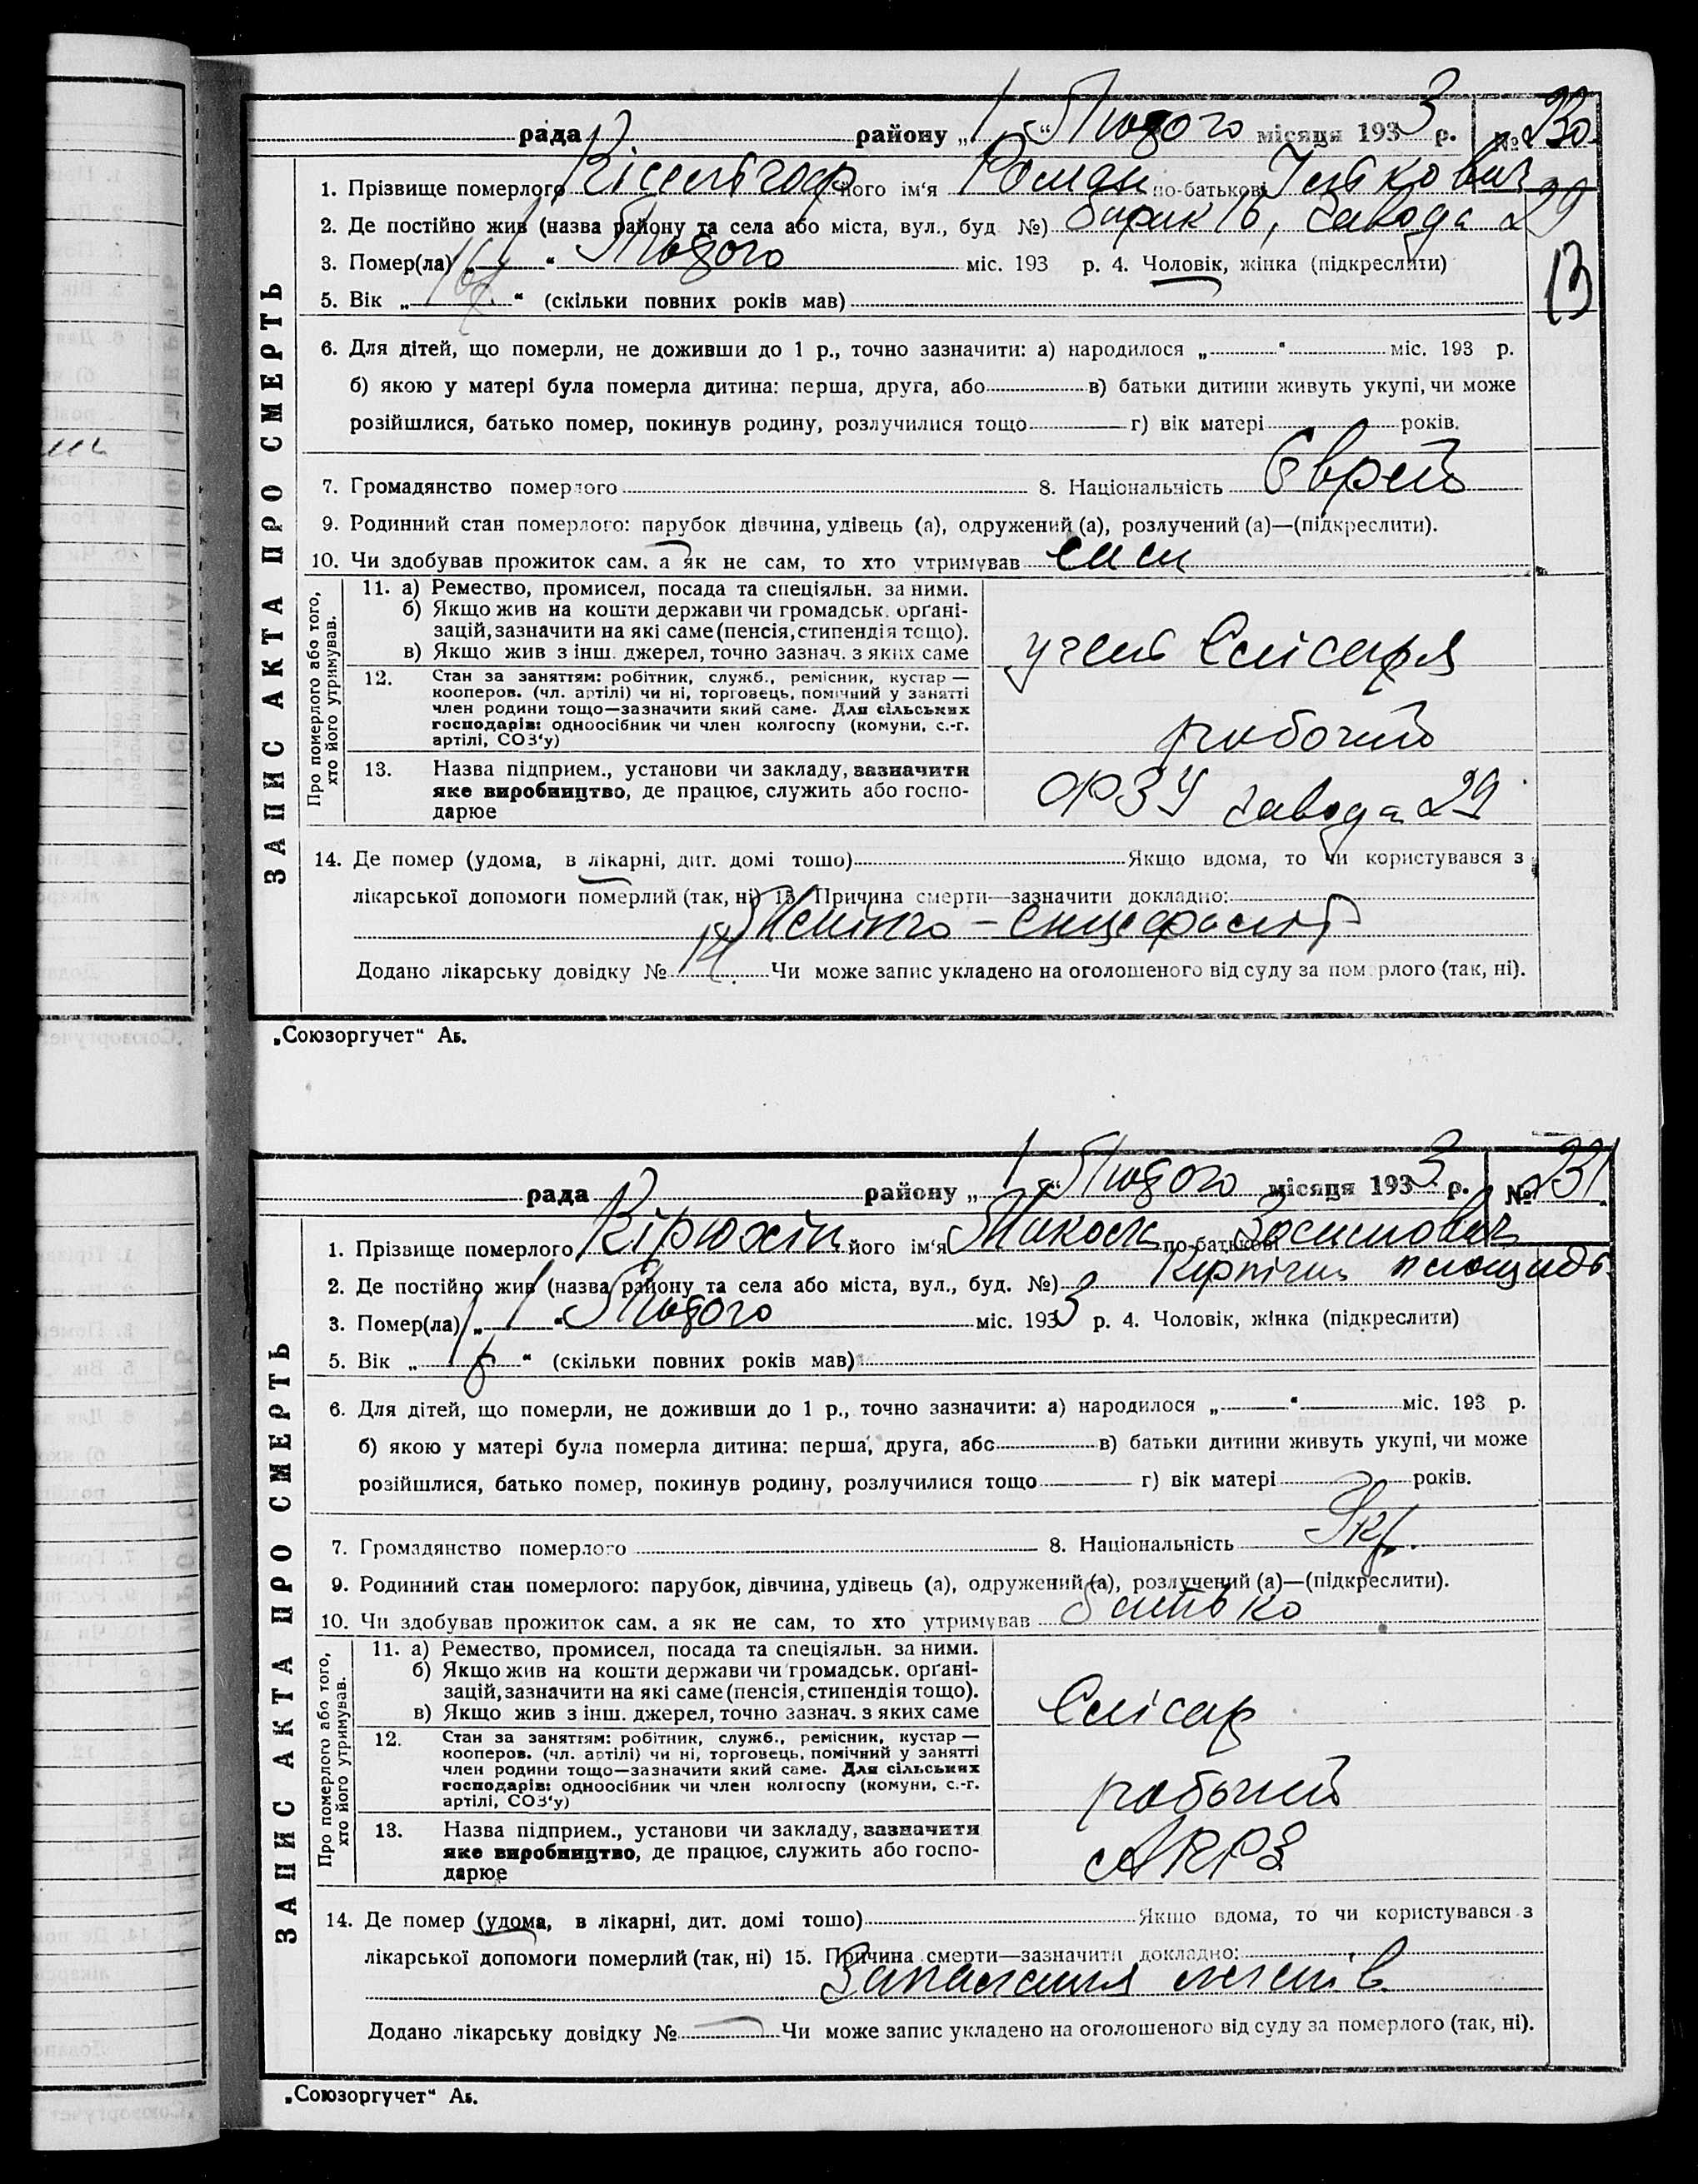 рада району „ 1 “ Лютого місяця 1933 р. № 230
1. Прізвище померлого його ім‘я Роман по-батькові
2. Де постійно жив (назва району та села або міста, вул., буд №) барак 15, завода 29
3. Помер(ла) „ 1 “ Лютого міс. 193 р. 4. Чоловік, жінка (підкреслити)
13
5. Вік „ “ (скільки повних років мав)
6. Для дітей, що померли, не доживши до 1 р., точно зазначити: а) народилося „ “ міс. 193 р.
б) якою у матері була померла дитина: перша, друга, або в) батьки дитини живуть укупі, чи може
розійшлися, батько помер, покинув родину, розлучилися тощо г) вік матері років.
7. Громадянство померлого 8. Національність Єврей
9. Родинний стан померлого: парубок дівчина, удівець (а), одружений (а), розлучений (а)—(підкреслити).
10. Чи здобував прожиток сам. а як не сам, то хто утримував сам
ЗАПИС АКТА ПРО СМЕРТЬ
Про померлого або того,
хто його утримував.
11. а) Ремество, промисел, посада та спеціяльн. за ними.
б) Якщо жив на кошти держави чи громадськ. орґані-
зацій, зазначити на які саме (пенсія, стипендія тощо).
в) Якщо жив з інш. джерел, точно зазнач. з яких саме
учень Слісаря
12. Стан за заняттям: робітник, служб., ремісник, кустар —
кооперов. (чл. артілі) чи ні, торговець, помічний у занятті
член родини тощо—зазначити який саме. Для сільських
господарів: одноосібник чи член колгоспу (комуни, с.-г.
артілі, СОЗ‘у)
рабочий
13. Назва підприєм., установи чи закладу, зазначити
яке виробництво, де працює, служить або госпо-
дарює
ФЗУ завода 29
14. Де помер (удома, в лікарні, дит. домі тощо) Якщо вдома, то чи користувався з
лікарської допомоги померлий (так, ні) 15. Причина смерти—зазначити докладно:
Менінго - енцефаліт
Додано лікарську довідку № 14 Чи може запис укладено на оголошеного від суду за померлого (так, ні).
„Союзоргучет“ Аб.
рада району „ 1 “ Лютого місяця 1933 р. № 231
1. Прізвище померлого Кірюхін його ім‘я Микола по-батькові
2. Де постійно жив (назва району та села або міста, вул., буд. №) площадь
3. Помер(ла) „ 1 “ Лютого міс. 1933 р. 4. Чоловік, жінка (підкреслити)
5. Вік „ “ (скільки повних років мав)
6. Для дітей, що померли, не доживши до 1 р., точно зазначити: а) народилося „ “ міс. 193 р.
б) якою у матері була померла дитина: перша, друга, або в) батьки дитини живуть укупі, чи може
розійшлися, батько помер, покинув родину, розлучилися тощо г) вік матері років.
7. Громадянство померлого 8. Національність Укр.
9. Родинний стан померлого: парубок, дівчина, удівець (а), одружений (а), розлучений (а)—(підкреслити).
10. Чи здобував прожиток сам. а як не сам, то хто утримував батько
ЗАПИС АКТА ПРО СМЕРТЬ
Про померлого або того,
хто його утримував.
11. а) Ремество, промисел, посада та спеціяльн. за ними.
б) Якщо жив на кошти держави чи громадськ. орґані-
зацій, зазначити на які саме (пенсія, стипендія тощо).
в) Якщо жив з інш. джерел, точно зазнач. з яких саме
Слісар
12. Стан за заняттям: робітник, служб., ремісник, кустар —
кооперов. (чл. артілі) чи ні, торговець, помічний у занятті
член родини тощо—зазначити який саме. Для сільських
господарів: одноосібник чи член колгоспу (комуни, с.-г.
артілі, СОЗ‘у)
рабочий
13. Назва підприєм., установи чи закладу, зазначити
яке виробництво, де працює, служить або госпо-
дарює
АКРЗ
14. Де помер (удома, в лікарні, дит. домі тощо) Якщо вдома, то чи користувався з
лікарської допомоги померлий (так, ні) 15. Причина смерти—зазначити докладно:
Запалення легенів
Додано лікарську довідку № Чи може запис укладено на оголошеного від суду за померлого (так, ні).
„Союзоргучет“ Аб.